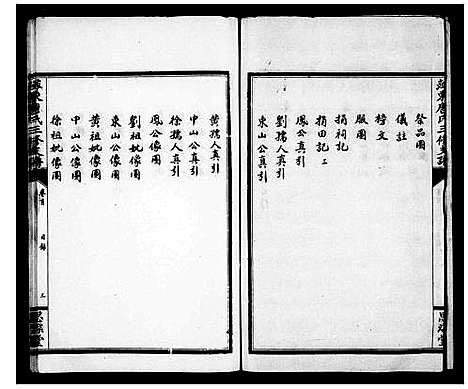 祭品圖
儀註
梼文
服圖
捐祠記
捐田記二
鳳公真引
劉孺人真引
東山公真引
黄孺人真引
中山公真引
徐孺人真引
鳳公像圖
劉祖妣像圖
東山公像圖
黄祖妣像圖
中山公像圖
徐祖妣像圖
卷首
目錄
三